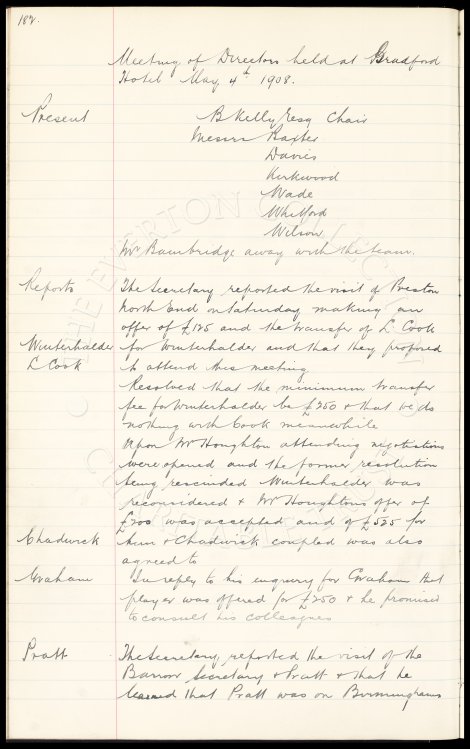 182.
Meeting of Directors held at Bradford
Hotel May 4th 1908.
Present
B Kelly Esq Chair
Messrs Baxter
Davies
Kirkwood
Wade
Whitford
Wilson
Mr Bainbridge away with the team.
Reports
The Secretary reported the visit of Preston
North End on Saturday making an
offer of £125 and the transfer of L Cook
Winterhalder
for Winterhalder and that they proposed
L Cook
to attend this meeting
Resolved that the minimum transfer
fee for Winterhalder be £250 & that we do
nothing with Cook meanwhile
Upon Mr Houghton attending negotiations
were opened and the former resolution
being rescinded Winterhalder was
reconsidered & Mr Houghtons offer of
£200 was accepted and of £525 for
Chadwick
& Chadwick coupled was also
agreed to
Graham
In reply to his enquiry for Graham that
player was offered for £250 & he promised
to consult his colleagues
Pratt
The Secretary reported the visit of the
Barrow Secretary & Pratt & that he
learned that Pratt was on Birminghams
THE EVERTON COLLECTION